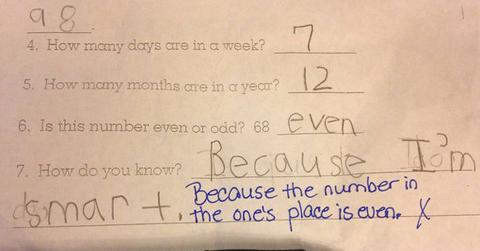 98
4. How many days are in a week? 7
5. How many months are in a year? 12
6. Is this number even or odd? 68 even
7. How do you know? Because I'm
smart.
Because the number in
the one's place is even. X